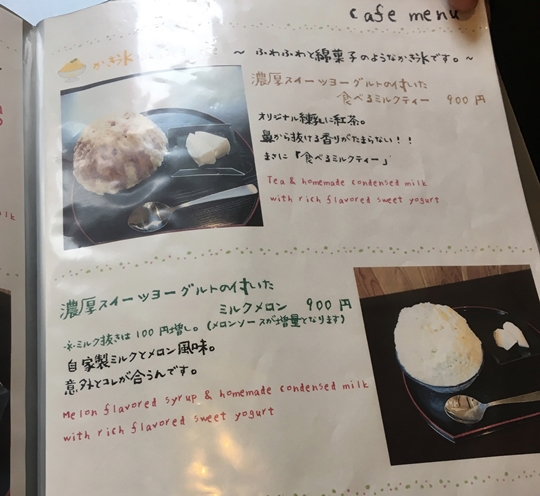 cafe menu
かき氷
～ ふわふわと綿菓子のようなかき氷です。～
濃厚スイーツヨーグルトの付いた
食べるミルクティー 900円
オリジナル練乳に紅茶。
鼻から抜ける香りがたまらない！！
まさに「食べるミルクティー」
Tea & homemade condensed milk
with rich flavored sweet yogurt
濃厚スイーツヨーグルトの付いた
ミルクメロン 900円
※ミルク抜きは100円増し。(メロンソースが増量となります)
自家製ミルクとメロン風味。
意外とコレが合うんです。
Melon flavored syrup & homemade condensed milk
with rich flavored sweet yogurt